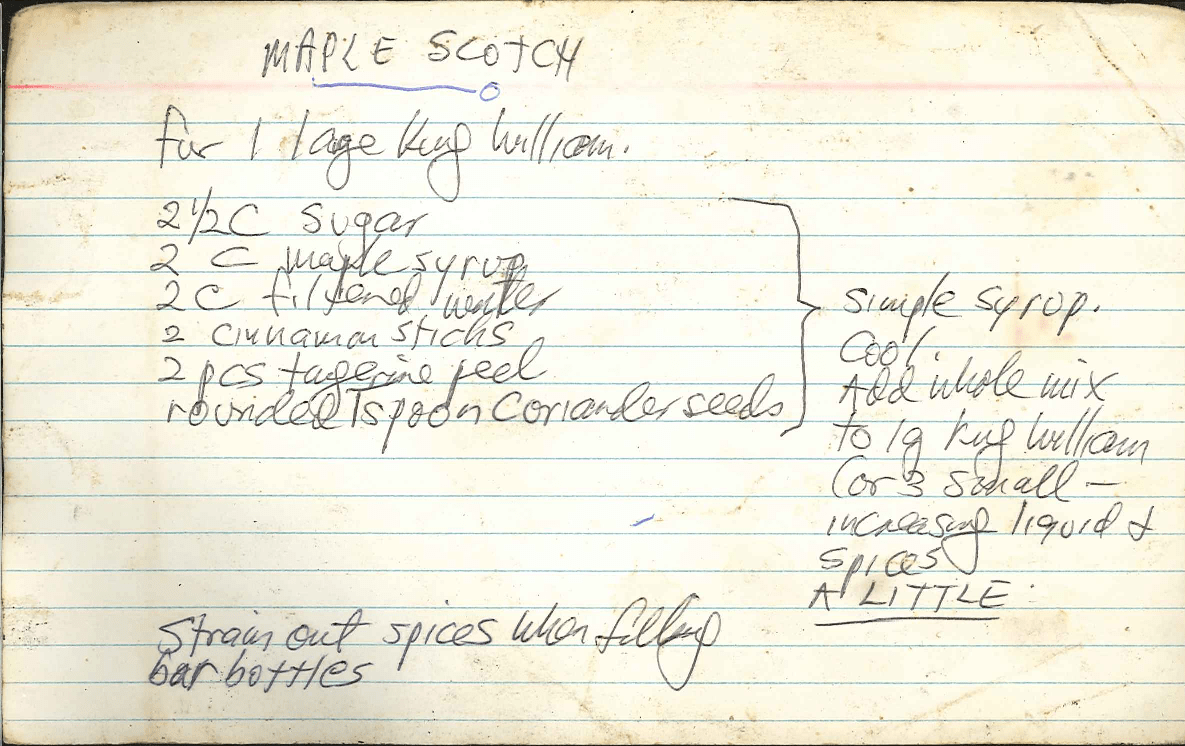 MAPLE SCOTCH
for 1 lage King William.
2 1/2 C sugar
2 C maple syrup
2 C filtered water
2 cinnamon sticks
2 pcs tagerine peel
rounded Tspoon Coriander seeds
simple syrop.
Cool
Add whole mix
to lg King William
(or 3 small —
increasing liquid &
spices
A LITTLE
Strain out spices when filling
bar bottles